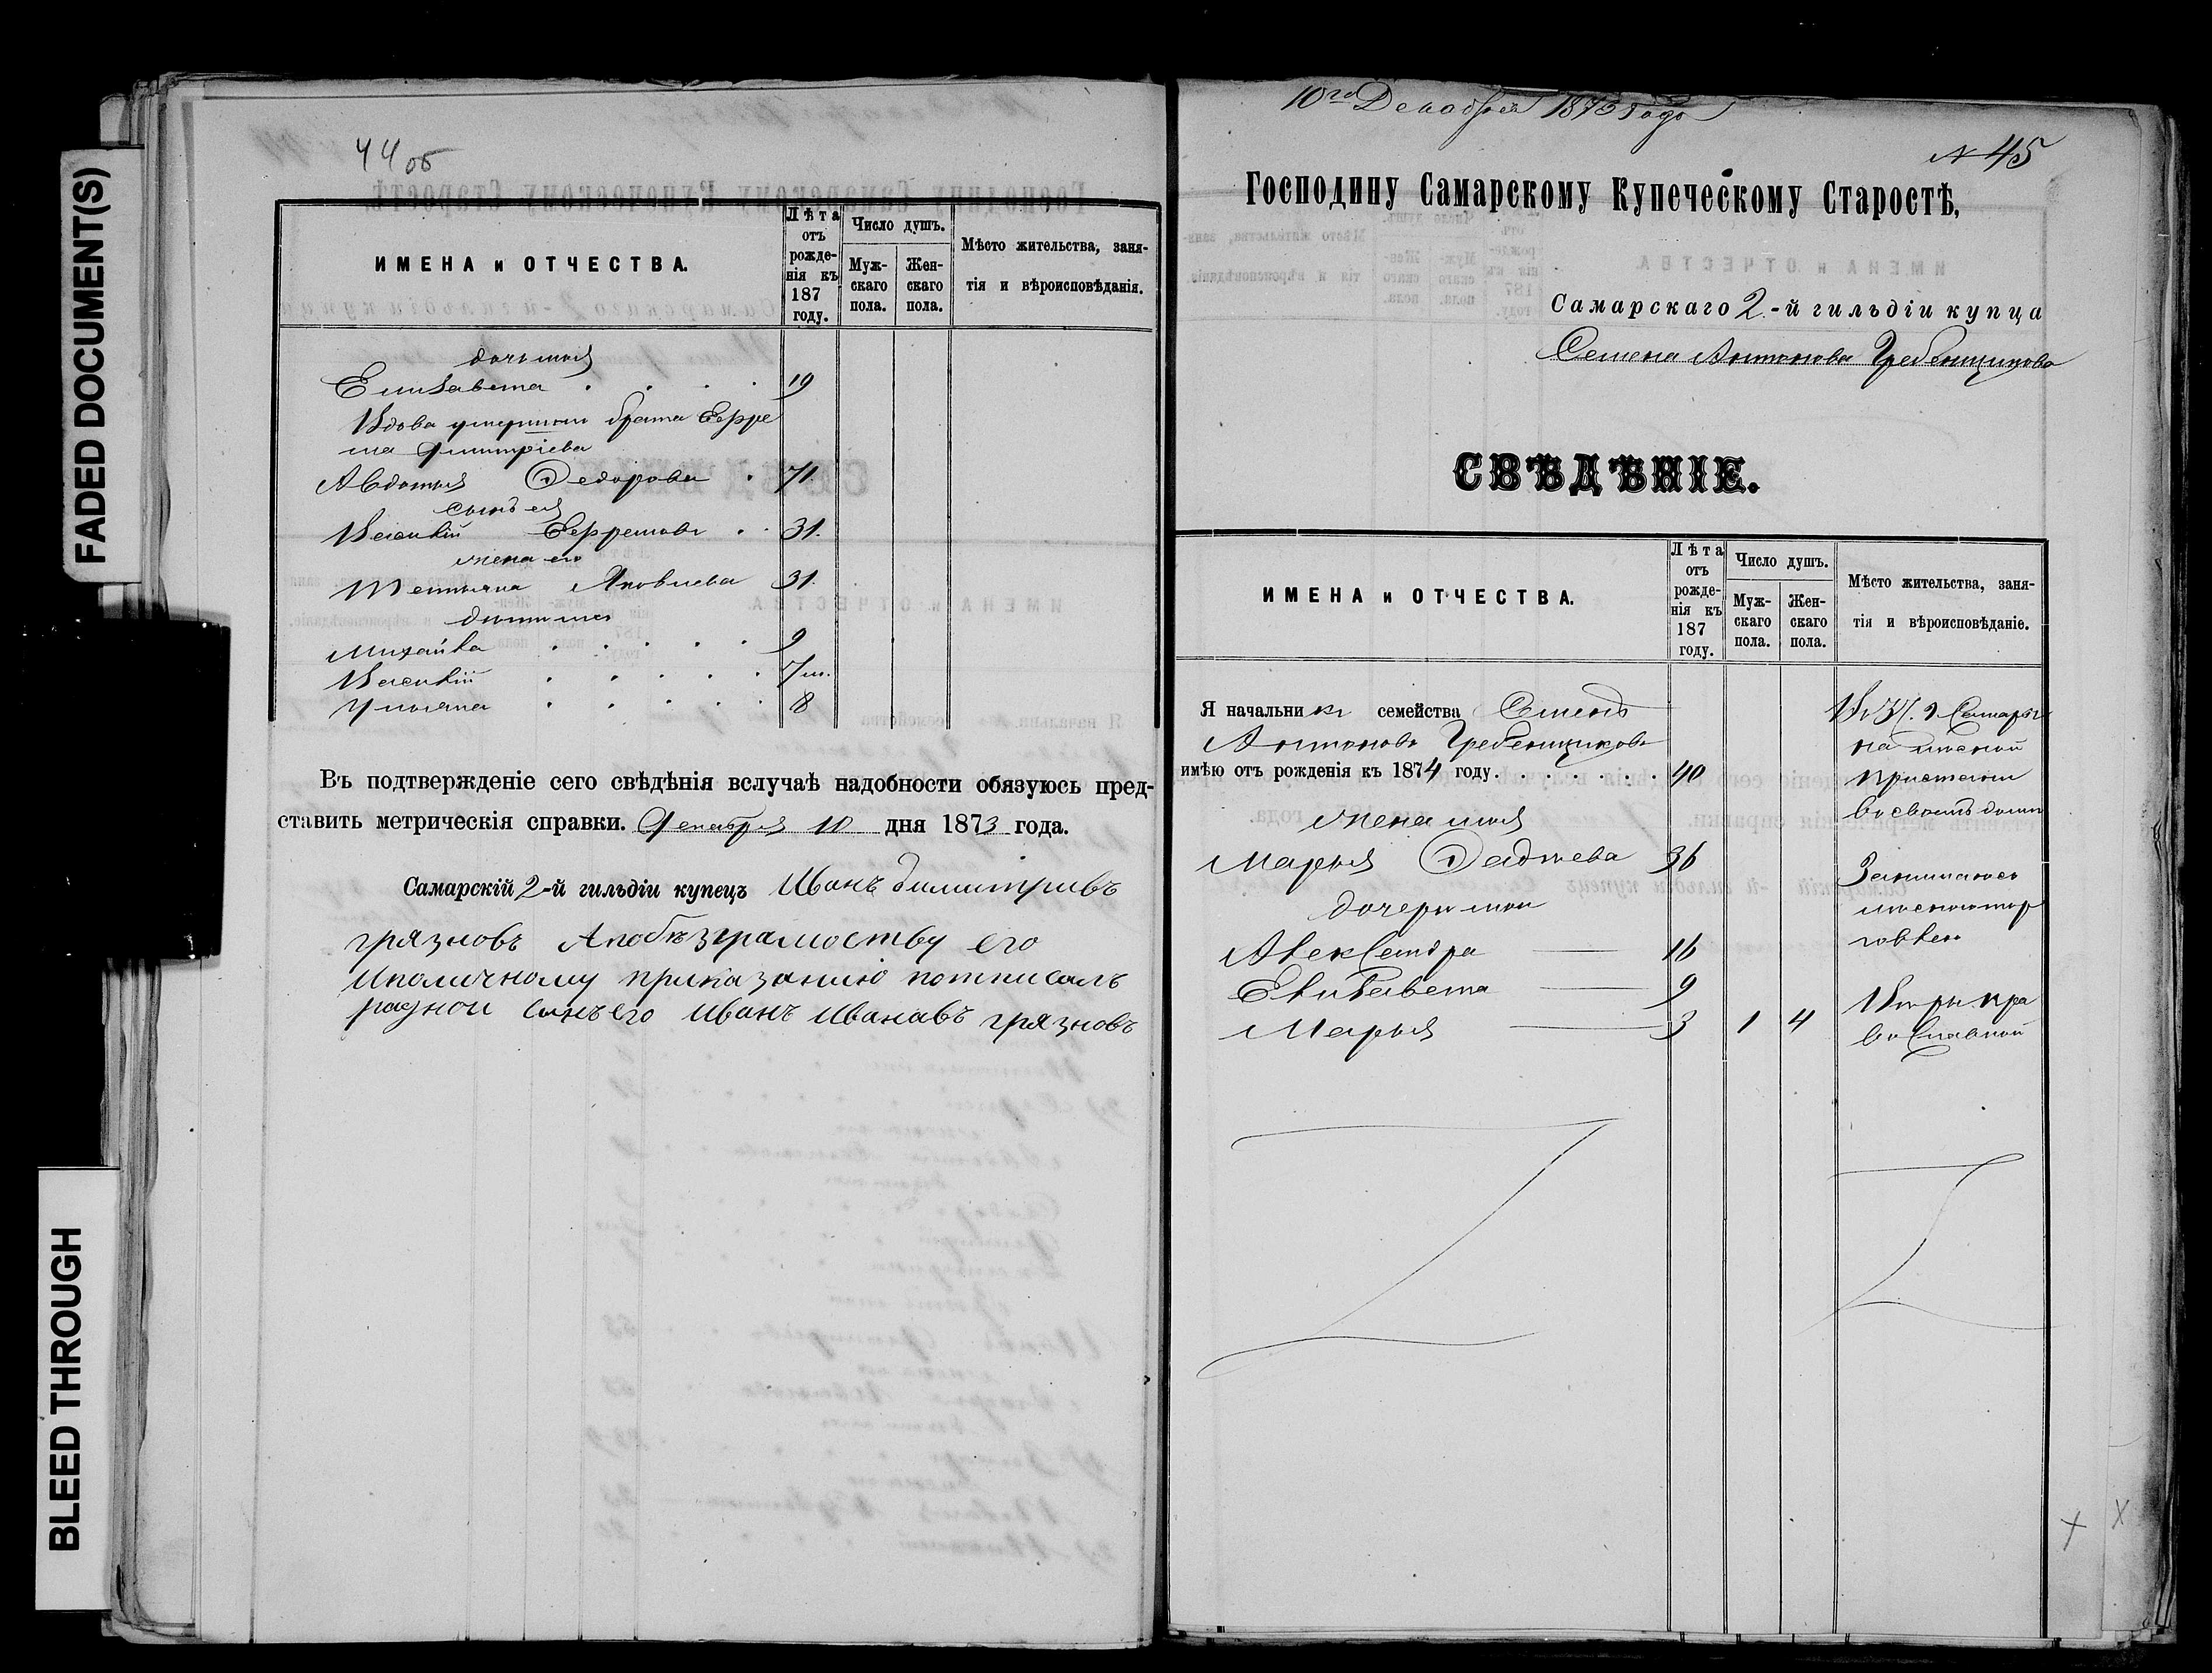 FADED DOCUMENT(S)
BLEED THROUGH
44 об
ИМЕНА и ОТЧЕСТВА.
Лѣта отъ рожденія къ 187 году.
Число душъ.
Мужскаго пола.
Женскаго пола.
Мѣсто жительства, занятія и вѣроисповѣданія.
дочь моя
Елизавета 19
Вдова умершаго брата Ефре
ма Дмитріева
Авдотья Федорова 71
сынъ ея
Василій Ефремовъ 31.
жена его
Татьяна Яковлева 31.
Михайла 9
Василій 7 м.
Ульяна 8
Въ подтвержденіе сего свѣдѣнія вслучаѣ надобности обязуюсь пред-
ставить метрическія справки. Декабря 10 дня 1873 года.
Самарскій 2-й гильдіи купецъ Иванъ димитривъ
грязновъ Апобѣзграмоству его
Иполичному приказанию потписалъ
разной Сынъ его Иванъ Иванавъ грязновъ
10го Декабря 1873 года
N 45
Господину Самарскому Купеческому Старостѣ,
Самарскаго 2-й гильдіи купца
Семена Антонова Гребенщикова
СВѢДѢНІЕ.
ИМЕНА и ОТЧЕСТВА.
Лѣта отъ рожденія къ 187 году.
Число душъ.
Мужскаго пола.
Женскаго пола.
Мѣсто жительства, занятія и вѣроисповѣданіе.
Я начальникъ семейства Семенъ
Антоновъ Гребенщиковъ
имѣю отъ рожденія къ 1874 году. 40
жена моя
Марья Фадѣева 36
дочери мои
Александра 16
Елизавета 9
Марья 3 1 4
Самарѣ
на лѣсной
пристани
во своемъ доми
Занимаюсь
лѣсною тор
говлею
Вѣры пра
вославной